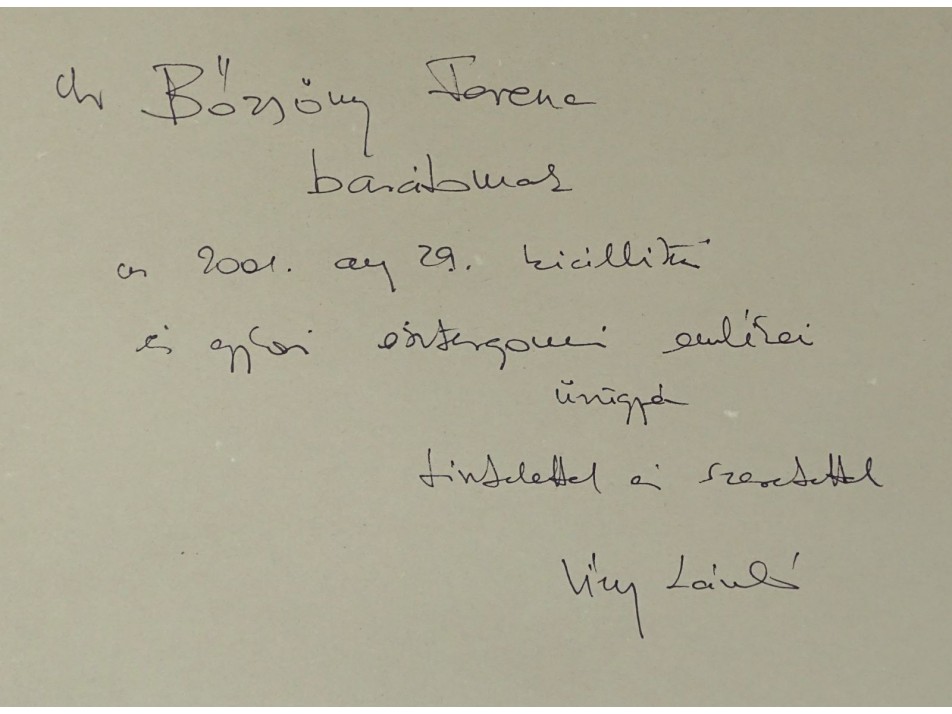 dr Bőzsöny Ferenc
barátomnak
a 2001. aug 29. kiállítás
és győri esztergomi emlékei
ürügyén
tisztelettel és szeretettel
László